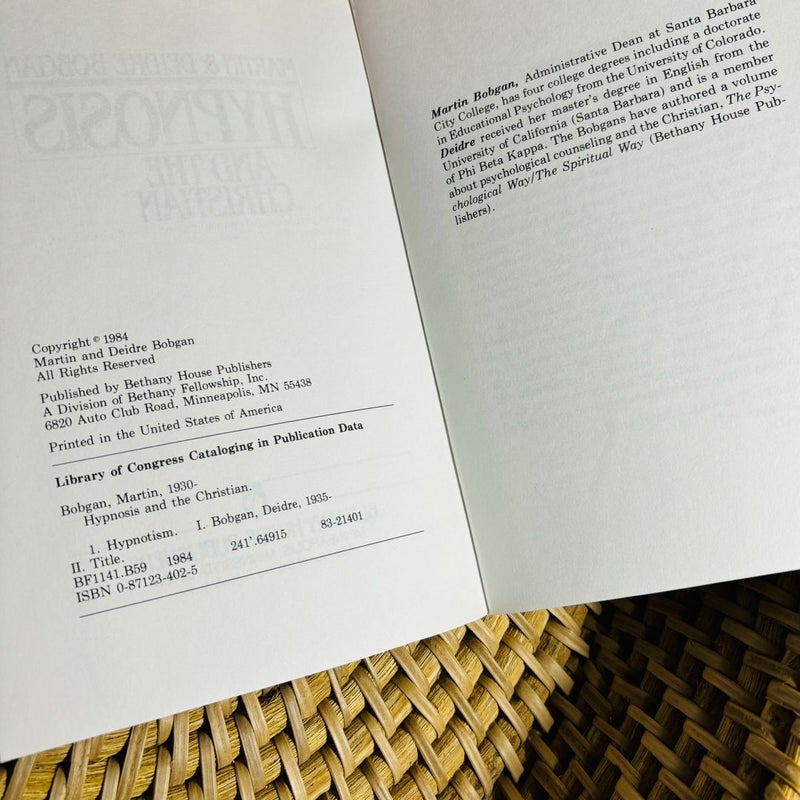 Copyright © 1984
Martin and Deidre Bobgan
All Rights Reserved
Published by Bethany House Publishers
A Division of Bethany Fellowship, Inc.
6820 Auto Club Road, Minneapolis, MN 55438
Printed in the United States of America
Library of Congress Cataloging in Publication Data
Bobgan, Martin, 1930-
Hypnosis and the Christian.
1. Hypnotism. I. Bobgan, Deidre, 1935-
II. Title.
BF1141.B59 1984 241'.64915 83-21401
ISBN 0-87123-402-5
Martin Bobgan, Administrative Dean at Santa Barbara
City College, has four college degrees including a doctorate
in Educational Psychology from the University of Colorado.
Deidre received her master's degree in English from the
University of California (Santa Barbara) and is a member
of Phi Beta Kappa. The Bobgans have authored a volume
about psychological counseling and the Christian, The Psy-
chological Way/The Spiritual Way (Bethany House Pub-
lishers).